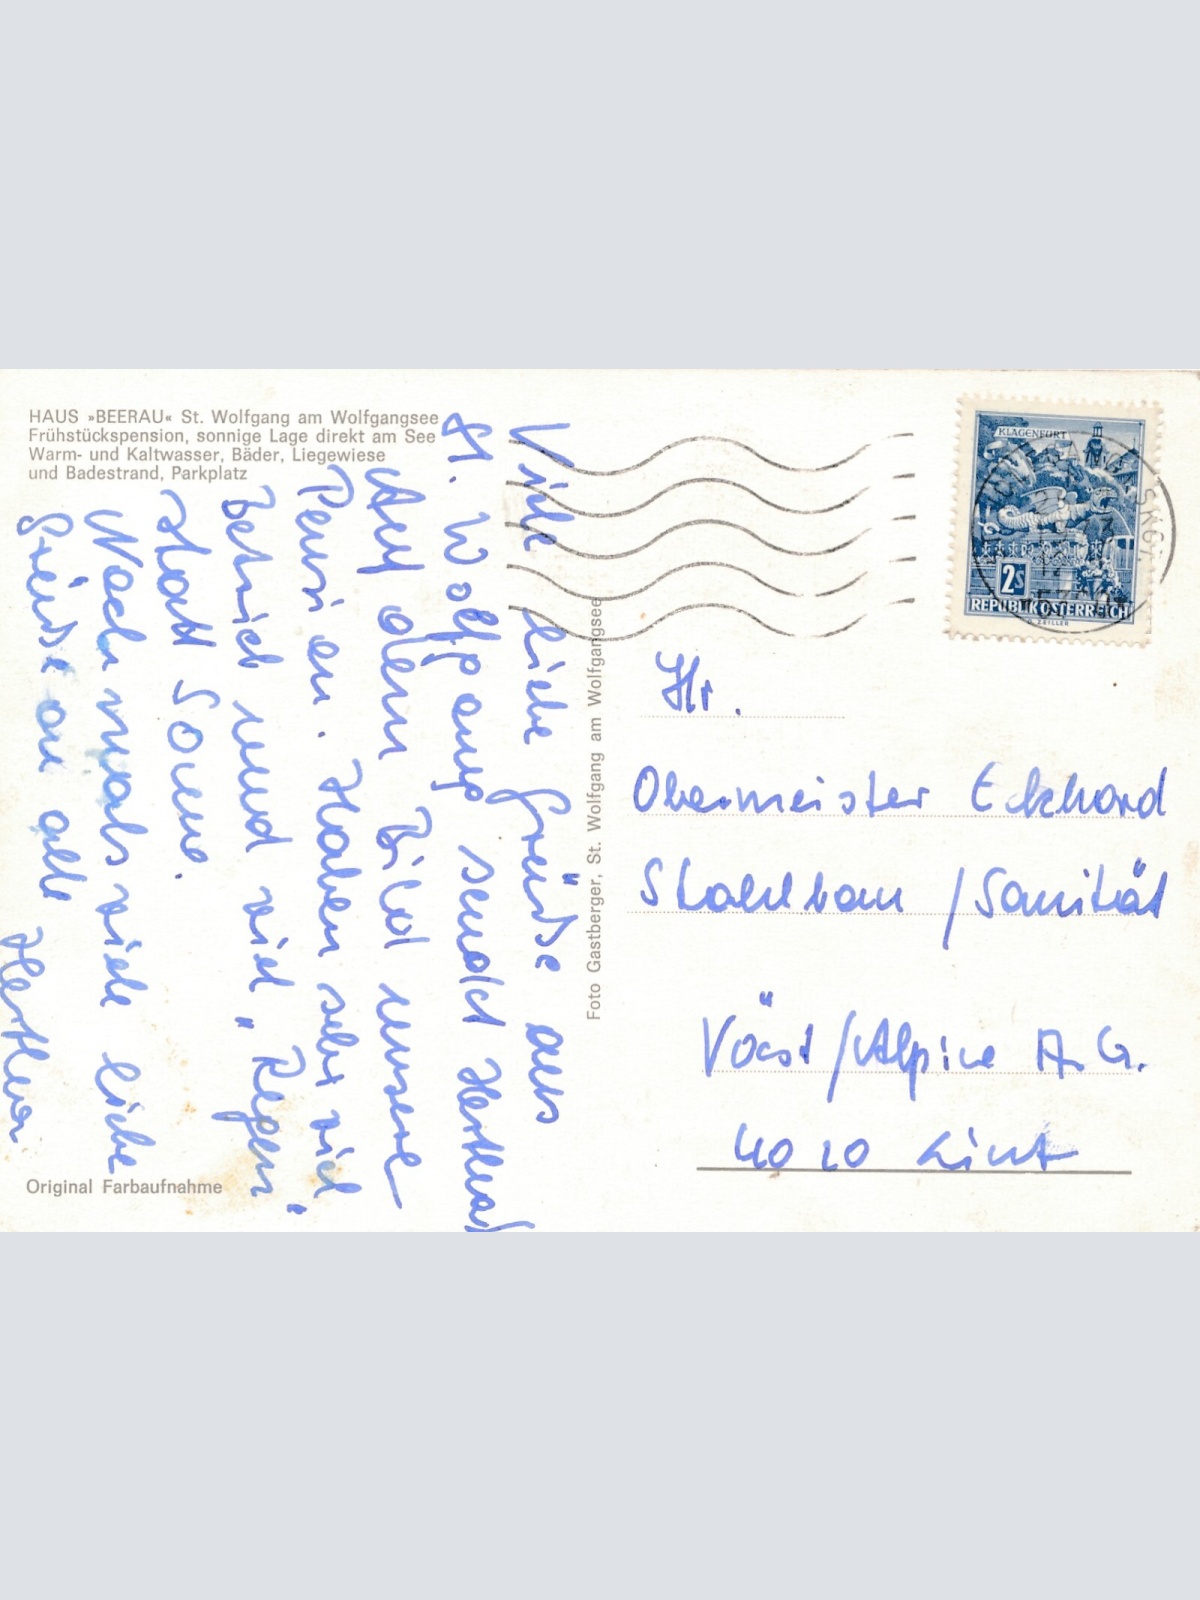 HAUS »BEERAU« St. Wolfgang am Wolfgangsee
Frühstückspension, sonnige Lage direkt am See
Warm- und Kaltwasser, Bäder, Liegewiese
und Badestrand, Parkplatz
Viele liebe Grüße aus
St. Wolfgang sendet Hertha!
Auf dem Bild unsere
Pension. Haben sehr viel
Betrieb und viel „Regen"
statt Sonne.
Nochmals viele liebe
Grüße an alle
Hertha
Original Farbaufnahme
Foto Gastberger, St. Wolfgang am Wolfgangsee
KLAGENFURT
2s
REPUBLIK ÖSTERREICH
ZEILLER
Hr.
Obermeister Eckhard
/Sanität
Vöest/Alpine A.G.
4020 Linz